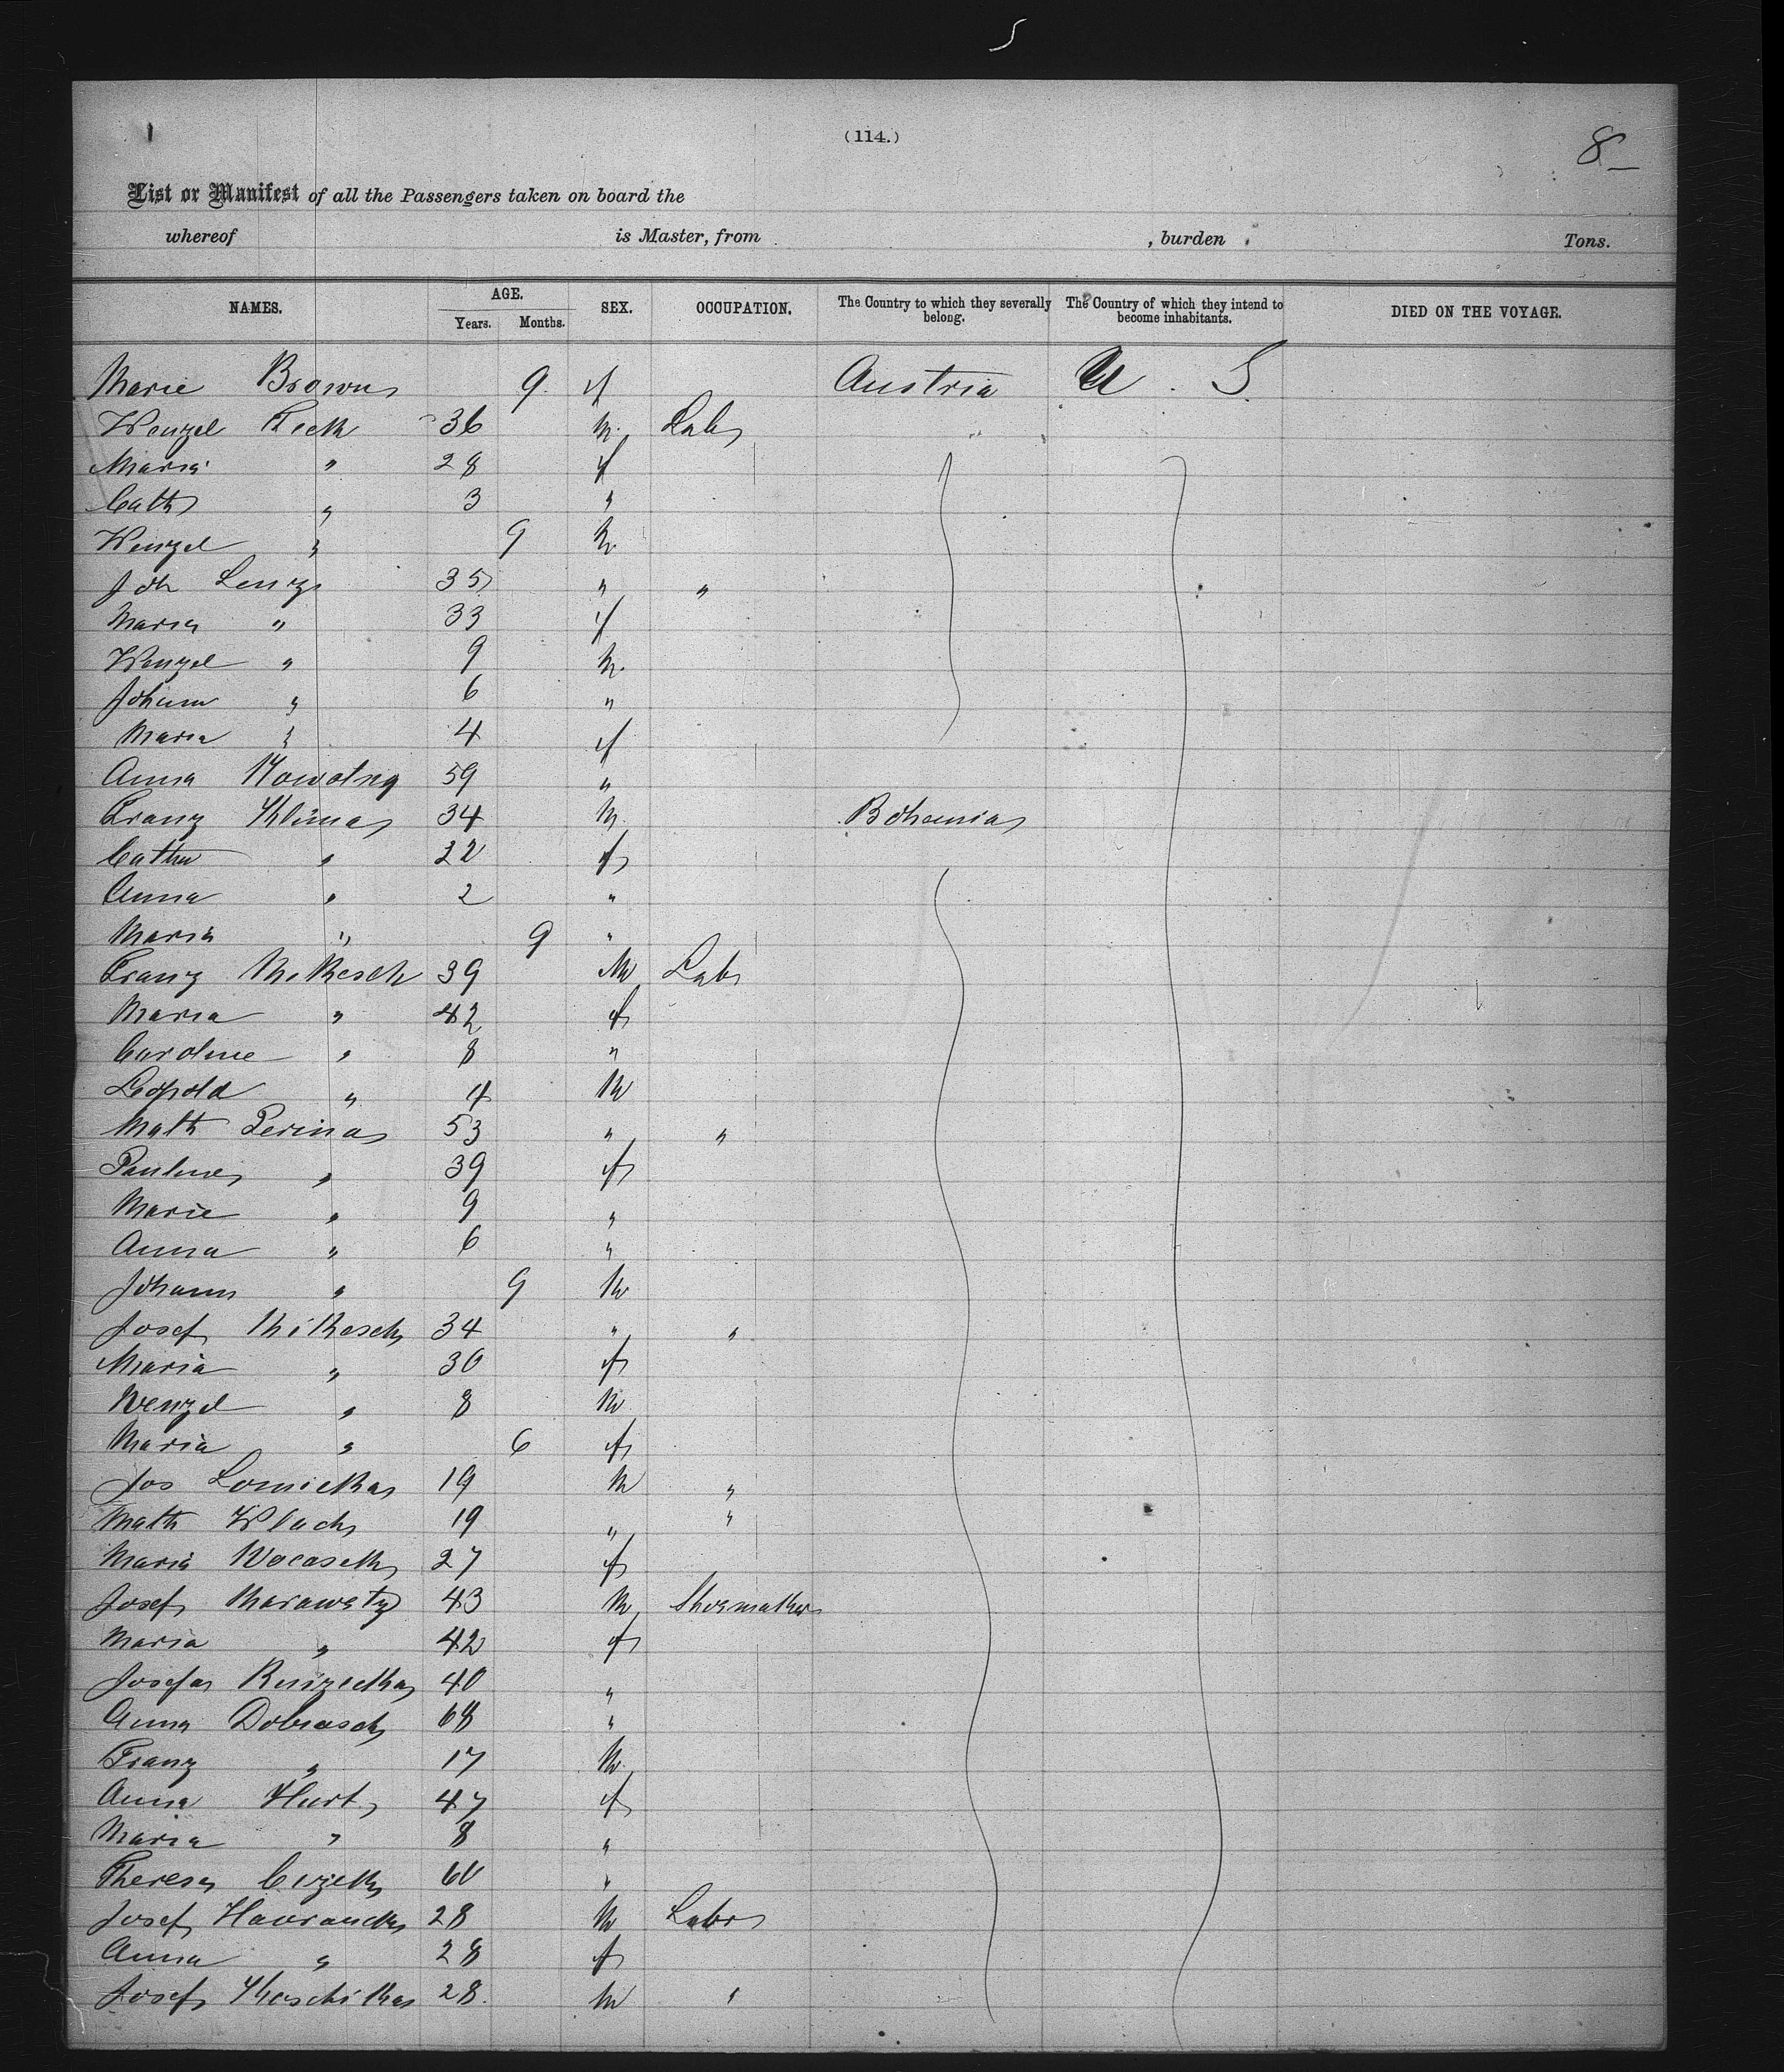 (114.)
8
List or Manifest of all the Passengers taken on board the
whereof is Master, from , burden Tons.
NAMES. AGE. Years. Months. SEX. OCCUPATION. The Country to which they severally belong. The Country of which they intend to become inhabitants. DIED ON THE VOYAGE.
Marie Brown 9 f Austria U. S
Wenzel 36 m Lab
Maria " 28 f
Cath " 3 "
Wenzel " 9 m
Joh Lenz 35 " "
Maria " 33 f
Wenzel " 9 m
Johann " 6 "
Maria " 4 f
Anna Nowotny 59 "
Franz Klima 34 m Bohemia
Cathe " 22 f
Anna " 2 "
Maria " 9 "
Franz Mikesch 39 m Lab
Maria " 42 f
Caroline " 8 "
Leopold " 4 m
Math Perina 53 " "
Pauline " 39 f
Marie " 9 "
Anna " 6 "
Johann " 9 m
Josef Mikesch 34 " "
Maria " 30 f
Wenzel " 8 m
Maria " 6 f
Jos Lomicka 19 m "
Math Wlach 19 " "
Maria Wocasek 27 f
Josef Marawetz 43 m Shoemaker
Maria " 42 f
Josefa Ruizecka 40 "
Anna Dobiasch 68 "
Franz " 17 m
Anna Hurt 47 f
Maria " 8 "
Theresa Cizek 60 "
Josef Hawranek 28 m Labr
Anna " 28 f
Josef Kaschika 28 m "